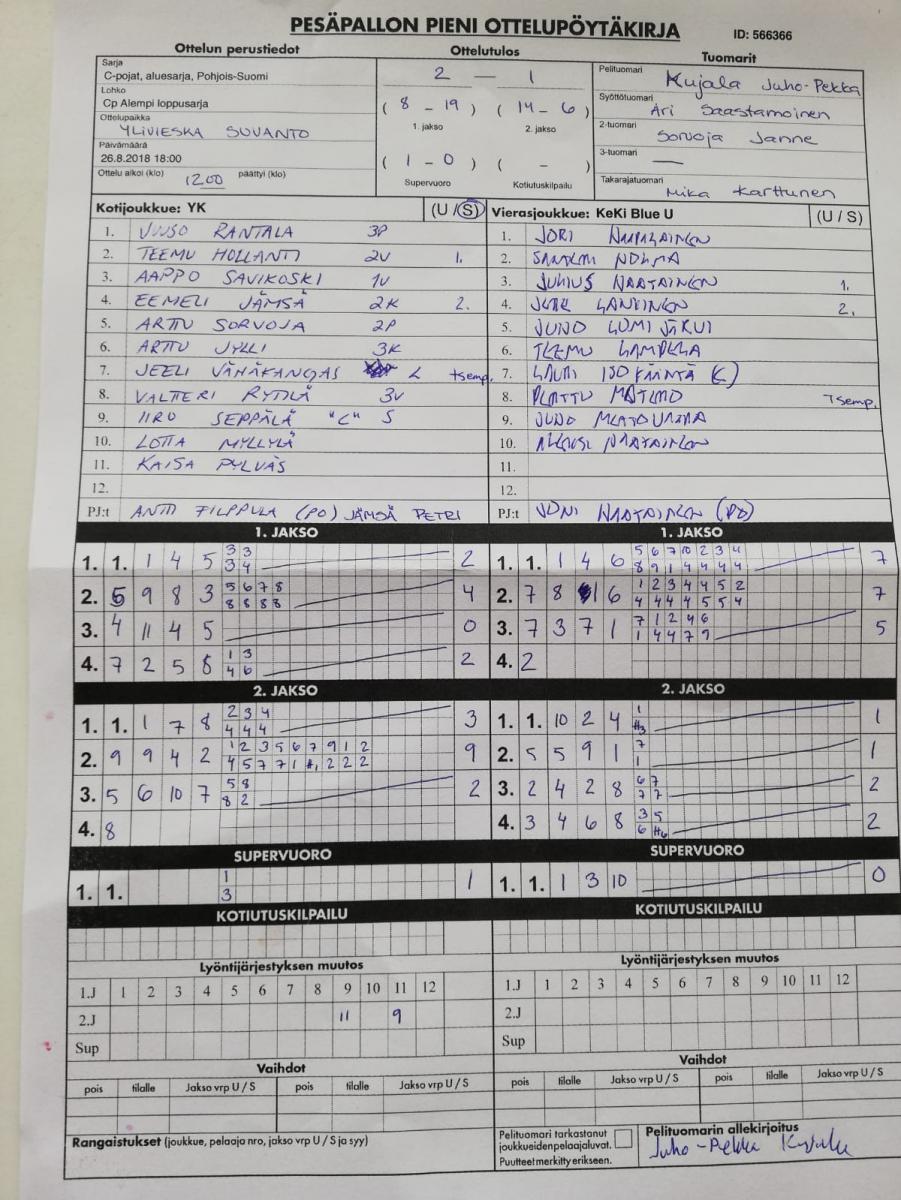 PESÄPALLON PIENI OTTELUPÖYTÄKIRJA
ID: 566366
Ottelun perustiedot
Ottelutulos
Tuomarit
Sarja
C-pojat, aluesarja, Pohjois-Suomi
Lohko
Cp Alempi loppusarja
Ottelupaikka
YLIVIESKA SUVANTO
Päivämäärä
26.8.2018 18:00
Ottelu alkoi (klo) 12.00 päättyi (klo)
2 – 1
( 8 – 19 ) ( 14 – 6 )
1. jakso 2. jakso
( 1 – 0 ) ( – )
Supervuoro Kotiutuskilpailu
Pelituomari Kujala Juho-Pekka
Syöttötuomari
Ari Saastamoinen
2-tuomari
Sorvoja Janne
3-tuomari —
Takarajatuomari
Mika Karttunen
Kotijoukkue: YK (U / S)
1. JUUSO RANTALA 3P
2. TEEMU HOLLANTI 2V 1.
3. AAPPO SAVIKOSKI 1V
4. EEMELI JÄMSÄ 2K 2.
5. ARTTU SORVOJA 2P
6. ARTTU JYLLI 3K
7. JEELI VÄHÄKANGAS L tsemp.
8. VALTTERI RYTILÄ 3V
9. IIRO SEPPÄLÄ "C" S
10. LOTTA MYLLYLÄ
11. KAISA PYLVÄS
12.
PJ:t ANTTI FILPPULA (PO) JÄMSÄ PETRI
Vierasjoukkue: KeKi Blue U (U / S)
1. JORI
2.
3. JULIUS 1.
4. 2.
5. JUHO LUMIJÄRVI
6. TEEMU LAMPELA
7. LAURI ISOKÄÄNTÄ (C)
8. Tsemp.
9. JUHO
10.
11.
12.
PJ:t JONI
1. JAKSO
1. 1. 1 4 5 3 3 2
3 4
2. 5 9 8 3 5 6 7 8 4
8 8 8 8
3. 4 11 4 5 0
4. 7 2 5 8 1 3 2
4 6
1. JAKSO
1. 1. 1 4 6 5 6 7 10 2 3 4 7
8 9 1 4 4 4 4
2. 7 8 1 6 1 2 3 4 4 5 2 7
4 4 4 4 5 5 4
3. 7 3 7 1 7 1 2 4 6 5
1 4 4 7 9
4. 2
2. JAKSO
1. 1. 1 7 8 2 3 4 3
4 4 4
2. 9 9 4 2 1 2 3 5 6 7 9 1 2 9
4 5 7 7 1 #1 2 2 2
3. 5 6 10 7 5 8 2
8 2
4. 8
2. JAKSO
1. 1. 10 2 4 1 1
#3
2. 5 5 9 1 7 1
1
3. 2 4 2 8 6 7 2
7 7
4. 3 4 6 8 3 5 2
6 #6
SUPERVUORO
1. 1. 1 1
3
SUPERVUORO
1. 1. 1 3 10 0
KOTIUTUSKILPAILU
KOTIUTUSKILPAILU
Lyöntijärjestyksen muutos
1.J 1 2 3 4 5 6 7 8 9 10 11 12
2.J 11 9
Sup
Lyöntijärjestyksen muutos
1.J 1 2 3 4 5 6 7 8 9 10 11 12
2.J
Sup
Vaihdot
pois tilalle Jakso vrp U / S pois tilalle Jakso vrp U / S
Vaihdot
pois tilalle Jakso vrp U / S pois tilalle Jakso vrp U / S
Rangaistukset (joukkue, pelaaja nro, jakso vrp U / S ja syy)
Pelituomari tarkastanut
joukkueiden pelaajaluvat.
Puutteet merkitty erikseen.
Pelituomarin allekirjoitus
Juho-Pekka Kujala